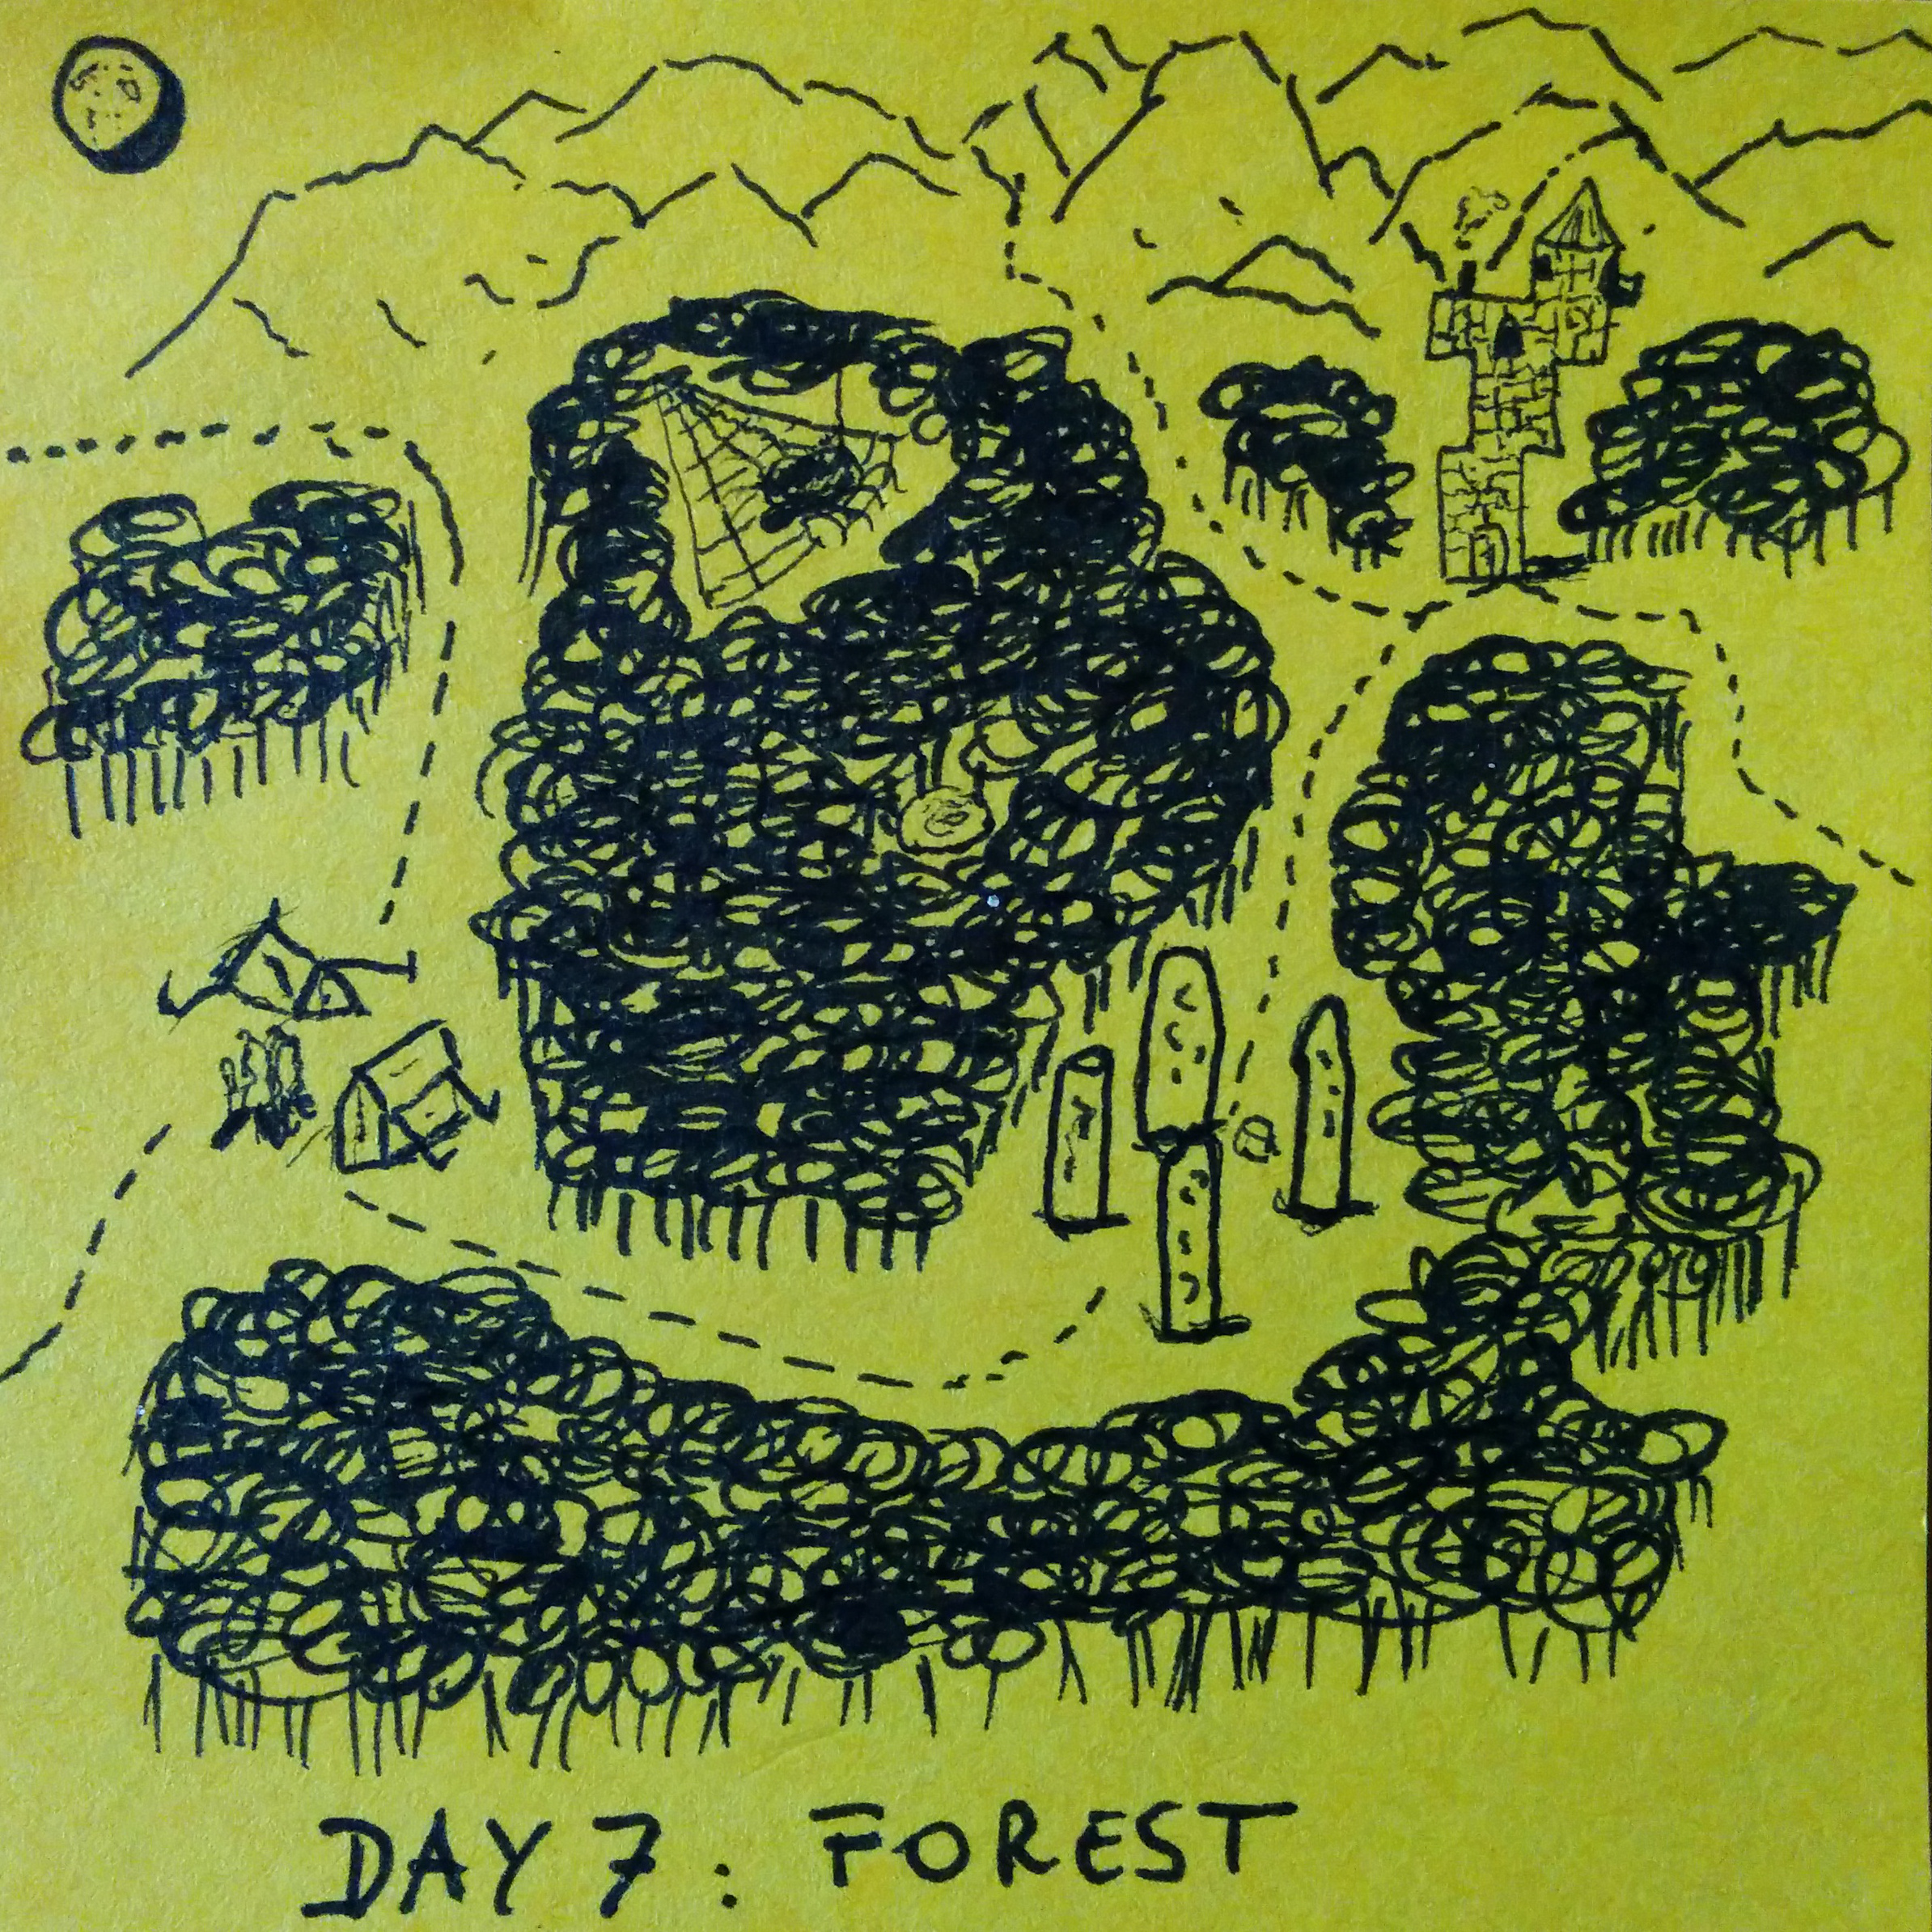 DAY 7: FOREST